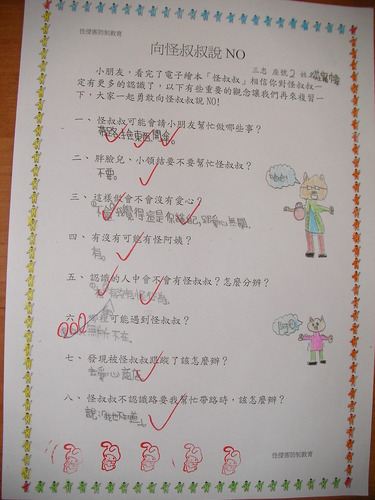 性侵害防制教育
向怪叔叔說 NO
三忠 座號2 姓名
小朋友，看完了電子繪本「怪叔叔」相信你對怪叔叔一
定有更多的認識了，以下有些重要的觀念讓我們再來複習一
下，大家一起勇敢向怪叔叔說NO！
一、怪叔叔可能會請小朋友幫忙做哪些事？
帶路、撿東西、開傘。
二、胖臉兒、小領結要不要幫忙怪叔叔？
不要。
三、這樣做會不會沒有愛心？
不會，我覺得這是保護自己，跟愛心無關。
四、有沒有可能有怪阿姨？
有。
五、認識的人中會不會有怪叔叔？怎麼分辨？
六、哪裡可能遇到怪叔叔？
無所不在。
七、發現被怪叔叔跟蹤了該怎麼辦？
去愛心商店
八、怪叔叔不認識路要我幫忙帶路時，該怎麼辦？
說：我也不知道。
性侵害防制教育